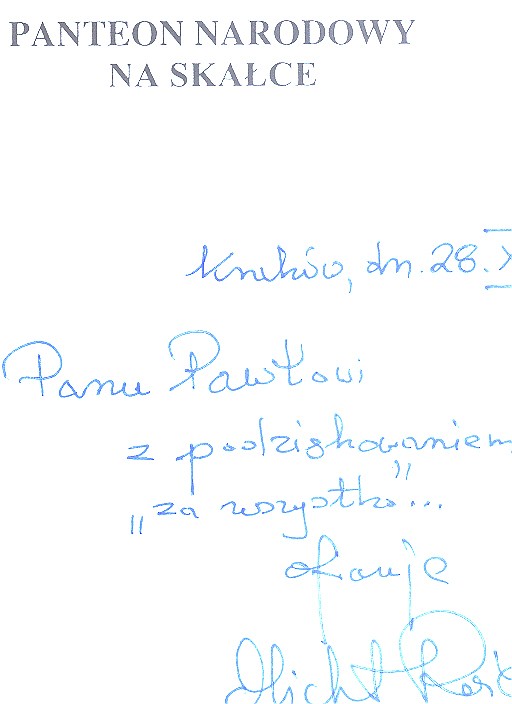 PANTEON NARODOWY
NA SKAŁCE
Kraków, dn. 28.X
Panu Pawłowi
z podziękowaniem
„za wszystko”...
ofiaruje
Michał